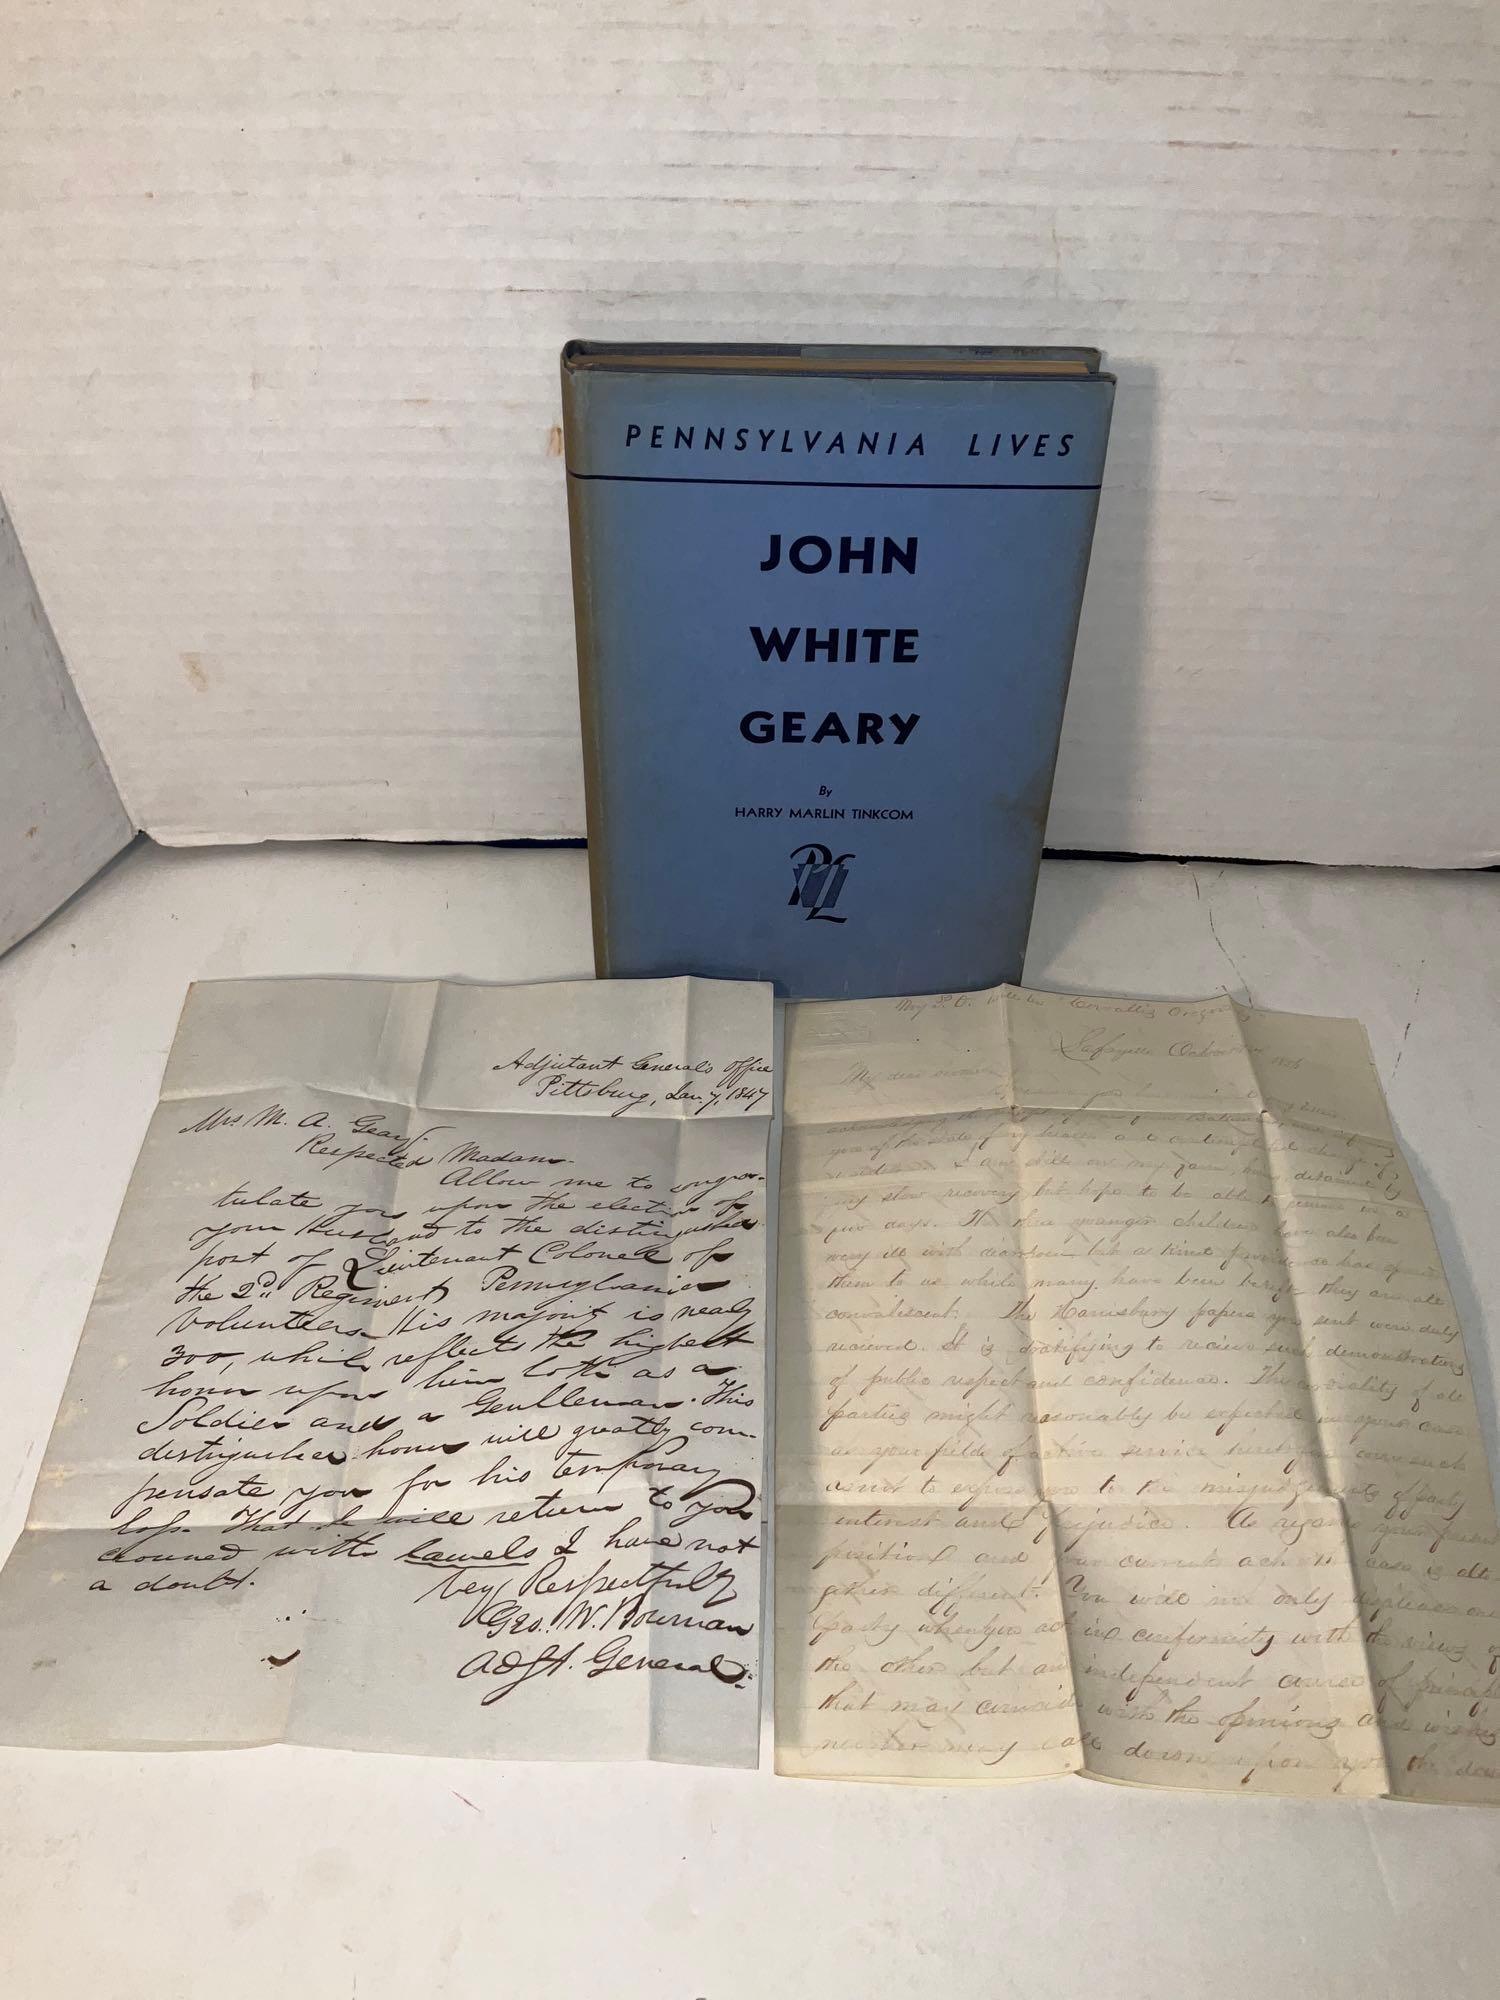 PENNSYLVANIA LIVES
JOHN
WHITE
GEARY
By
HARRY MARLIN TINKCOM
PL
Adjutant General's Office
Pittsburg, Jan. 7, 1847
Mrs M. A. Geary.
Respected Madam.
Allow me to congra-
tulate you upon the election of
your Husband to the distinguished
post of Lieutenant Colonel of
the 2d Regiment Pennsylvania
Volunteers. His majority is nearly
300, which reflects the highest
honor upon him both as a
Soldier and a Gentleman. This
distinguished honor will greatly com-
pensate you for his temporary
loss. That he will return to you
crowned with laurels I have not
a doubt.
Very Respectfully
Geo. W. Bowman
Adjt. General.
My P.O. will be Corvallis Oregon
Lafayette
My dear
residence. I am still on my farm, here, detained by
my slow recovery but hope to be able to in a
few days. The three younger children have also been
very ill with but a kind providence has spared
them to us while many have been bereft they are all
convalescent. The Harrisburg papers you sent were duly
recieved. It is gratifying to recieve such demonstrations
of public respect and confidence. The of all
parties might reasonably be expected in your case
as your fields of active service were such
as not to expose you to the misjudgments of party
interest and prejudice. As regards your present
position and your current acts the case is alto-
gether different. You will not only displease one
party when you act in conformity with the views of
the other but an independent course of principle
that may coincide with the opinions and wishes
neither may call down upon you the